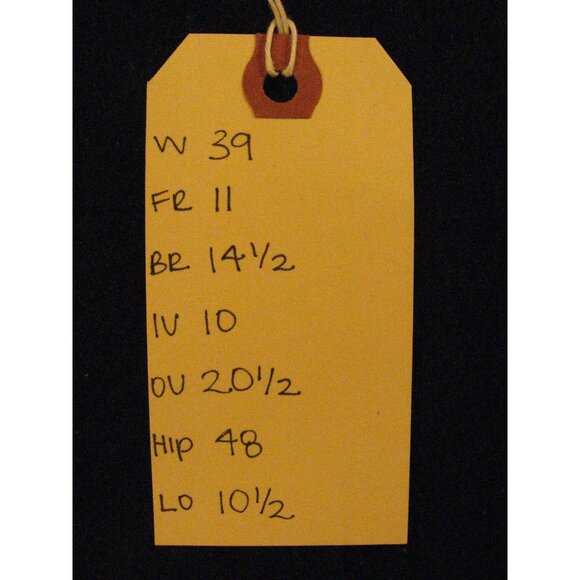 W 39
FR 11
BR 14 1/2
IV 10
OU 20 1/2
HIP 48
LO 10 1/2